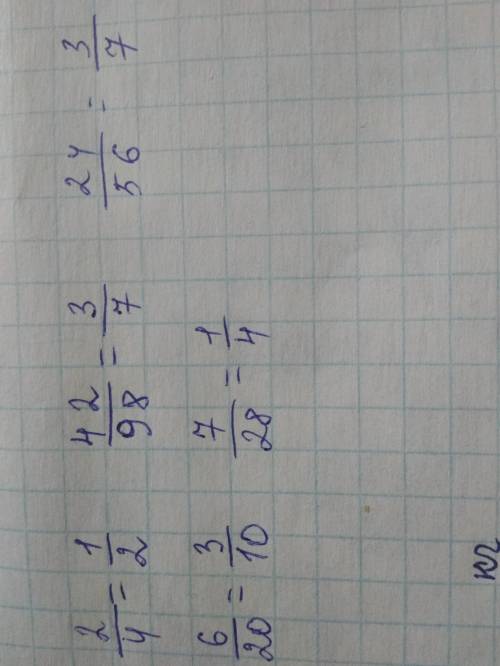 2/4 = 1/2 42/98 = 3/7 24/56 = 3/7
6/20 = 3/10 7/28 = 1/4
юг